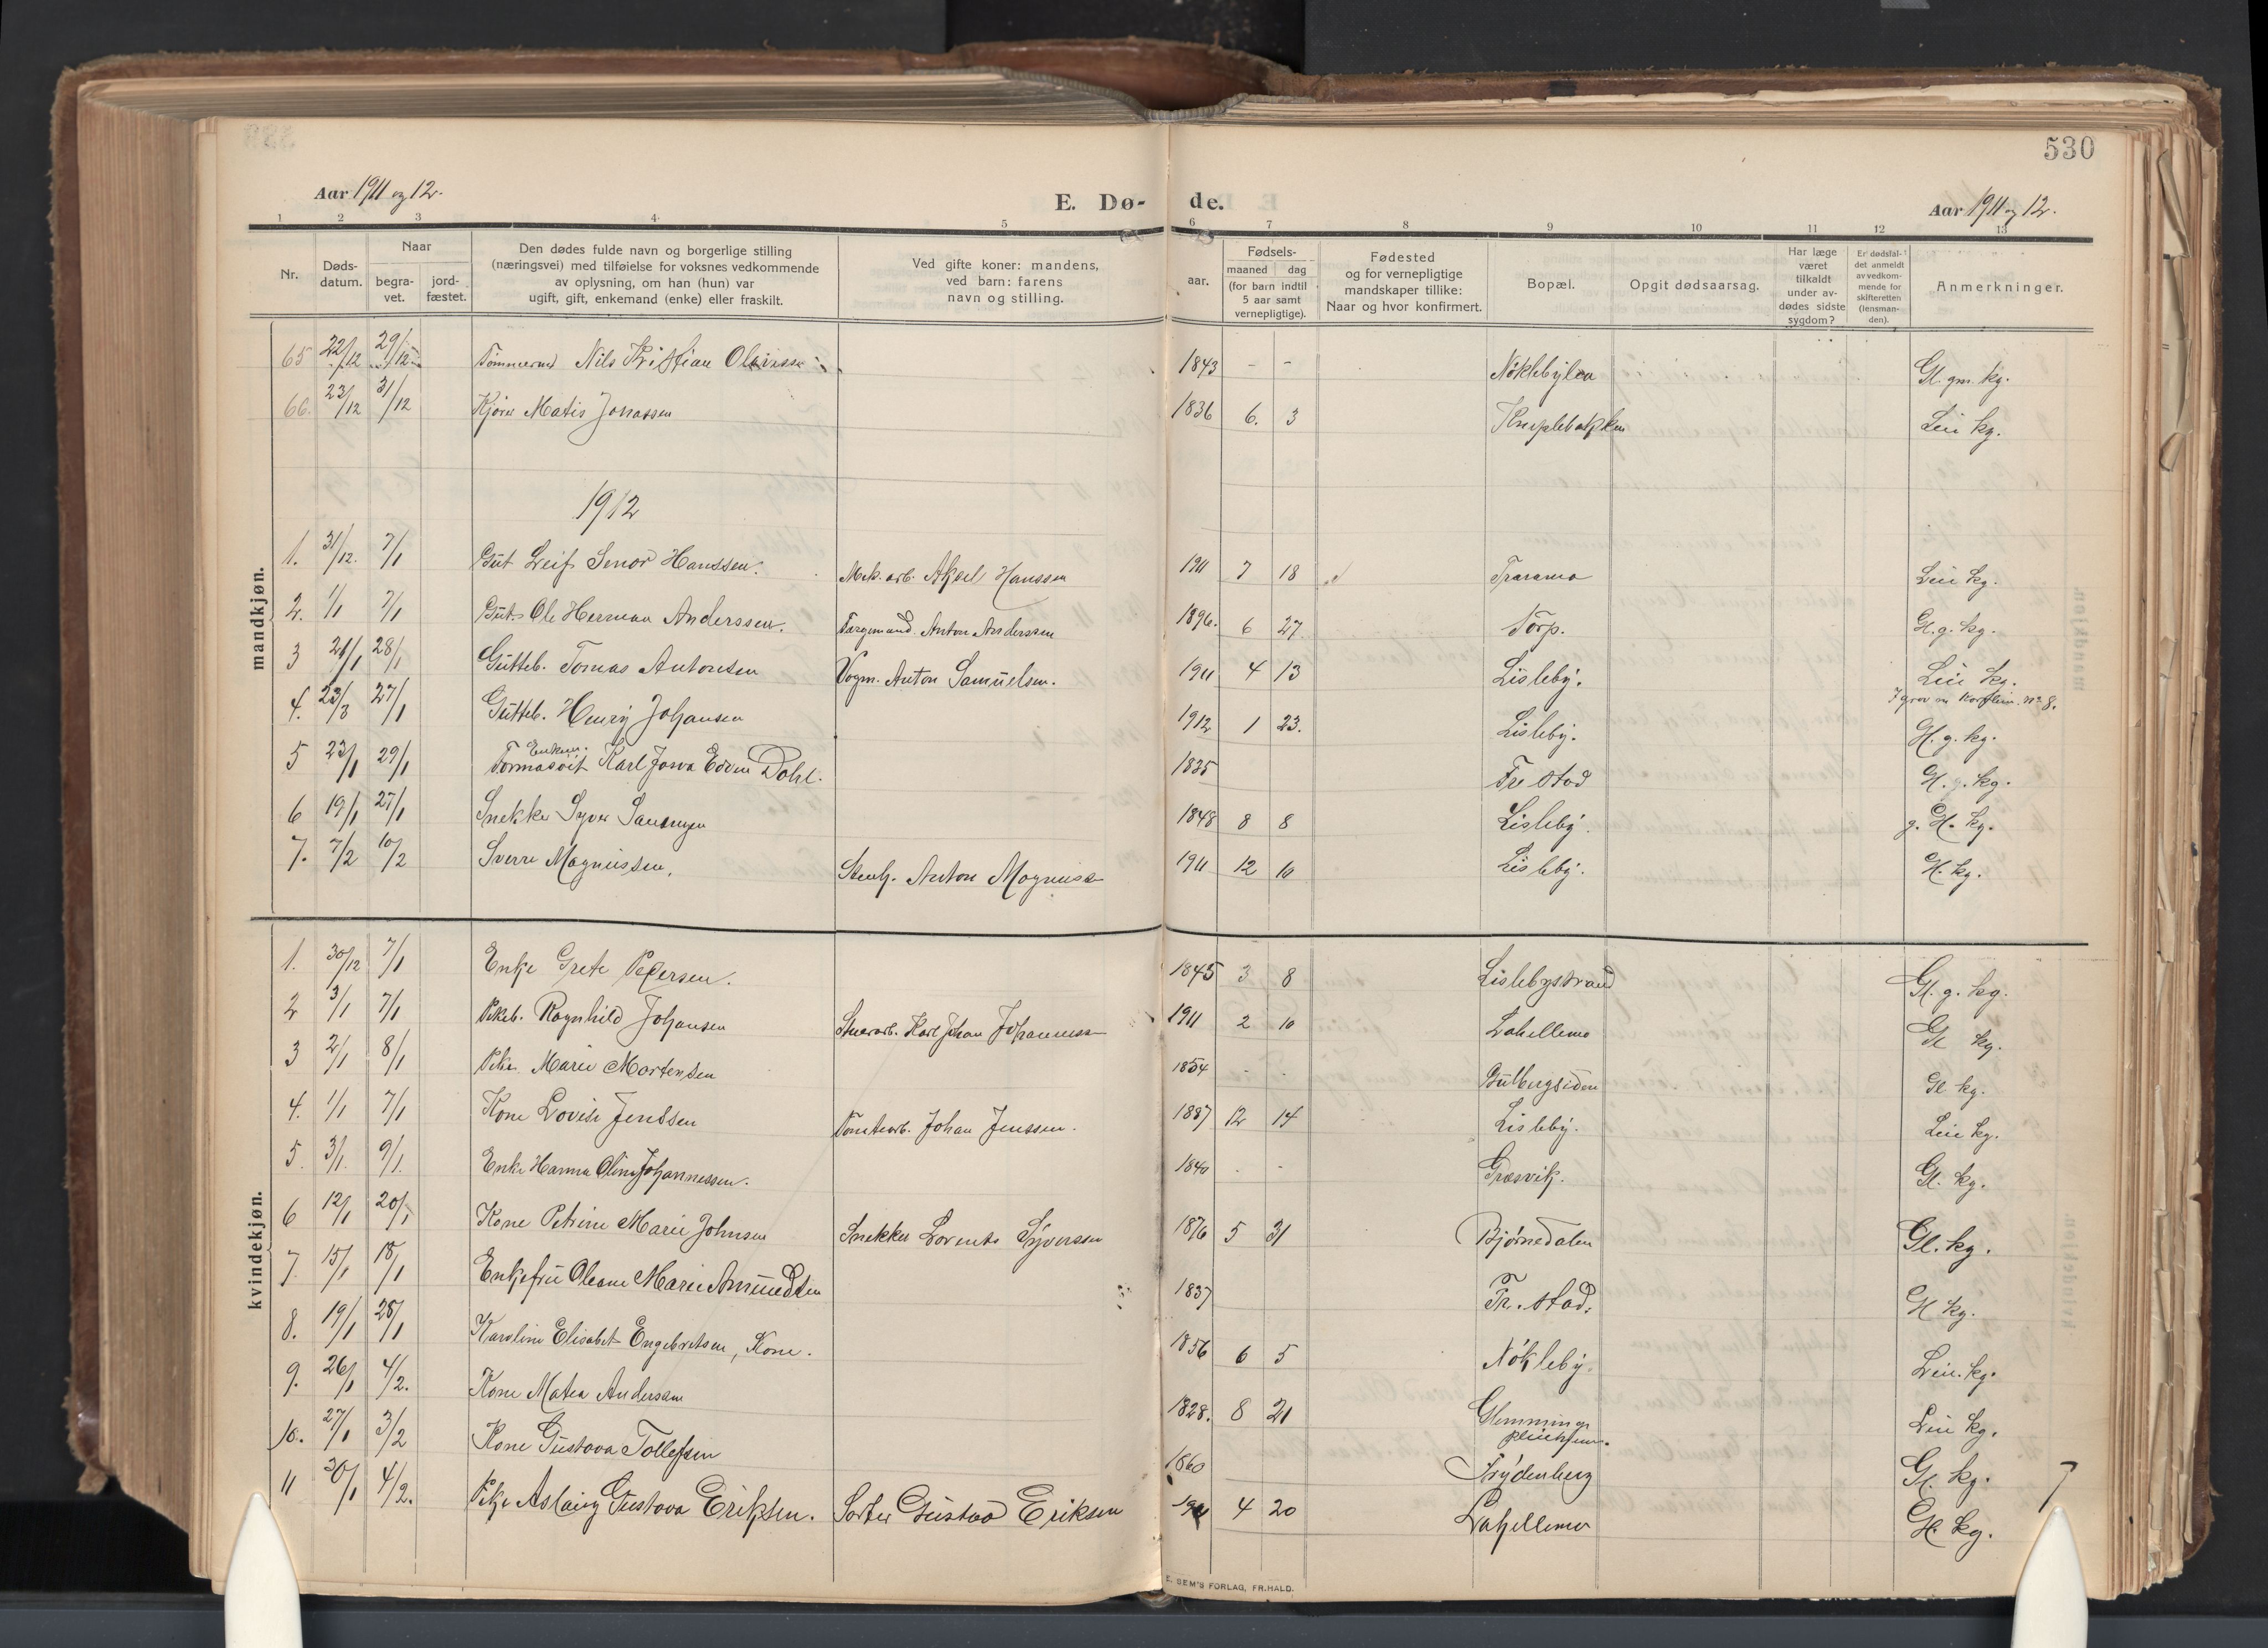 530
Aar 1911 og 12.
E. Dø- de.
Aar 1911 og 12.
1 2 3 4 5 6 7 8 9 10 11 12 13
Nr.
Døds-
datum.
Naar
begra-
vet.
jord-
fæstet.
Den dødes fulde navn og borgerlige stilling
(næringsvei) med tilføielse for voksnes vedkommende
av oplysning, om han (hun) var
ugift, gift, enkemand (enke) eller fraskilt.
Ved gifte koner: mandens,
ved barn: farens
navn og stilling.
aar.
Fødsels-
maaned dag
(for barn indtil
5 aar samt
vernepligtige).
Fødested
og for vernepligtige
mandskaper tillike:
Naar og hvor konfirmert.
Bopæl.
Opgit dødsaarsag.
Har læge
været
tilkaldt
under av-
dødes sidste
sygdom?
Er dødsfal-
det anmeldt
av vedkom-
mende for
skifteretten
(lensman-
den).
Anmerkninger.
mandkjøn.
65 22/12 29/12 Tømmermd Nils Kristian 1843 - - Nøklebylea Gl. gm. kg.
66. 23/12 31/12 Kjører Matis Jonassen 1836 6. 3 Kniplebakken Leie kg.
1912
1. 31/12. 7/1 Gut Leif Senor Hanssen. Mek. arb. Aksel Hanssen 1911 7 18 Traramo Leie kg.
2. 1/1 7/1 Gut Ole Herman Anderssen. Færgemand. Anton Anderssen 1896. 6 27 Torp. Gl. g. kg.
3 21/1 28/1 Gutteb. Tomas Antonsen Vogm. Anton Samuelsen. 1911 4 13 Lisleby. Leie kg.
4. 23/3 27/1 Gutteb. Henry Johansen 1912 1 23. Lisleby. I grav no 8. Gl. g. kg.
5 23/1 29/1 Enkem. Karl Edvin Dahl. 1835 Fr.stad Gl. g. kg.
6 19/1 27/1 Snekker Syver 1848 8 8 Lisleby. g. Gl. kg.
7. 7/2 10/2 Sverre Magnussen. Stenh. Anton Magnuss 1911 12 10 Lisleby. Gl. kg.
kvindekjøn.
1. 30/12 7/1 Enke Grete Pedersen. 1845 3 8 Lislebystrand Gl. g. kg.
2 3/1 7/1 Pikeb. Ragnhild Johansen Stenarb. Karl Johan Johanness 1911 2 10 Lahellemo Gl kg.
3 2/1 8/1 Pike Marie Mortensen 1854 - - Gulbergsiden Gl kg.
4. 1/1 7/1 Kone Lovise Jenssen Tomtearb. Johan Jenssen. 1887 12 14 Lisleby. Leie kg.
5. 3/1. 9/1. Enke Hanna Oline Johannessen. 1840 - - Græsvik. Gl. kg.
6 12/1 20/1 Kone Petrine Marie Johnsen Snekker Lorents Syverssen 1876 5 31 Bjørnedalen Gl. kg.
7. 15/1 18/1 Enkefru Oleane Marie Amundsen 1837 Fr. stad. Gl kg.
8. 19/1 28/1 Karoline Elisabet Engebretsen, Kone. 1856 6 5 Nøkleby. Leie. kg.
9. 26/1 4/2. Kone Matea Anderssen 1828. 8 21 Glemminge pleiehjem. Leie kg.
10. 27/1 3/2 Kone Gustava Tollefsen 1860 Frydenberg Gl. kg.
11 30/1 4/2. Pike Aslaug Gustava Eriksen. Sorter Gustav Eriksen 1911 4 20 Lahellemo Gl. kg.
E. SEM'S FORLAG, FR.HALD.